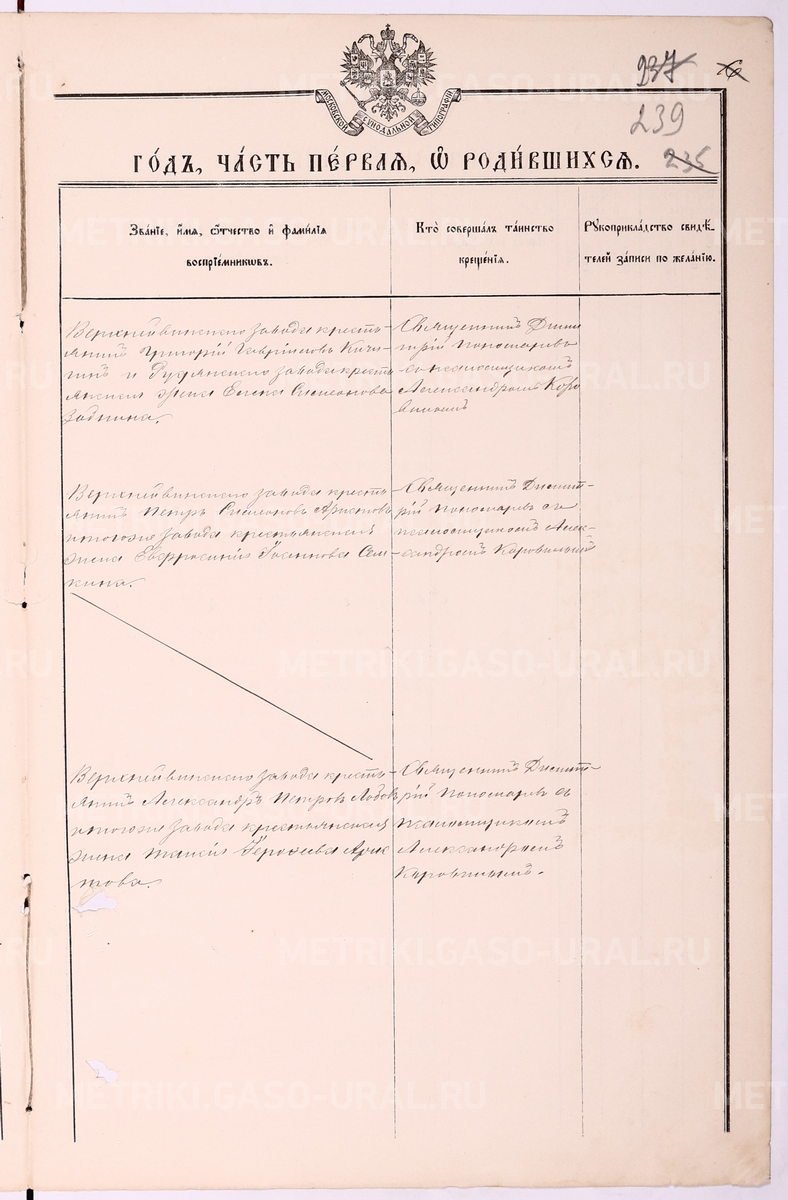 237
239
235
МОСКОВСКОЙ СѴНОДАЛЬНОЙ ТИПОГРАФІИ
ГО́ДЪ, ЧА́СТЬ ПЕ́РВАЯ, Ѽ РОДИ́ВШИХСЯ.
Зва́нїе, и҆́мѧ, ѻ҆́тчество и҆ фами́лїѧ
воспрїе́мникѡвъ.
Кто̀ соверша́лъ та́инство
креще́нїѧ.
Рꙋкоприкла́дство свидѣ́-
телей за́писи по жела́нїю.
Верхнейвинскаго завода кресть-
янинъ Григорій Гавріиловъ Кичи-
гинъ и завода кресть
янская жена Елена Симеонова
Священникъ Дими
трій Пономаревъ
со псаломщикомъ
Александромъ Коро
Верхнейвинскаго завода кресть
янинъ Петръ Симеоновъ
и тогоже завода крестьянская
жена Евфросинія Іоаннова Сем-
кина.
Священникъ Димит-
рій Пономаревъ съ
псаломщикомъ Алек-
сандромъ
Верхнейвинскаго завода кресть-
янинъ Александръ Петровъ
и тогоже завода крестьянская
жена Таисія
Священникъ Димит-
рій Пономаревъ съ
псаломщикомъ
Александромъ
METRIKI.GASO-URAL.RU